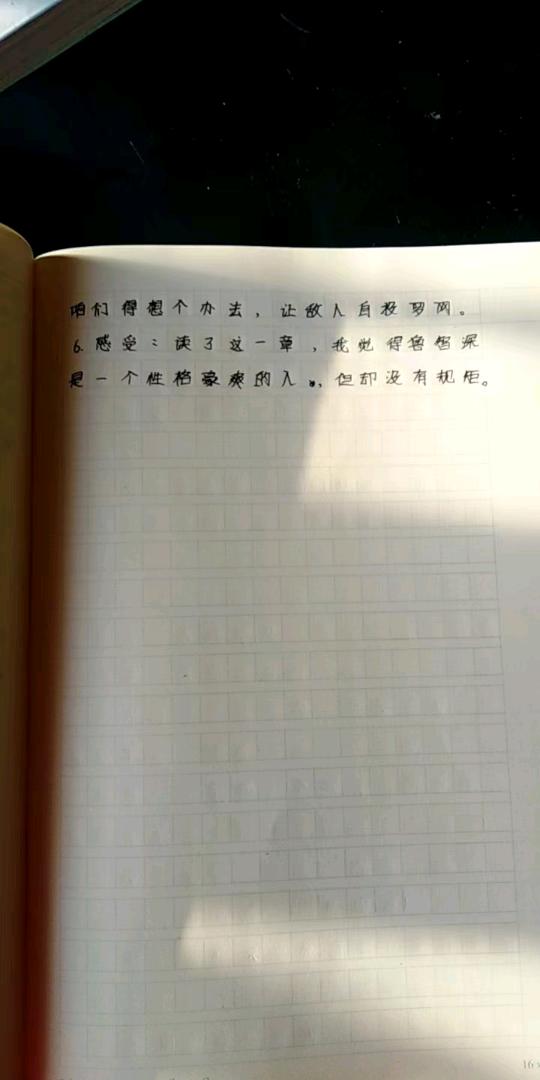 咱们得想个办去，让敌人自投罗网。
6.感受：读了这一章，我觉得鲁智深
是一个性格豪爽的人，但却没有规矩。
16